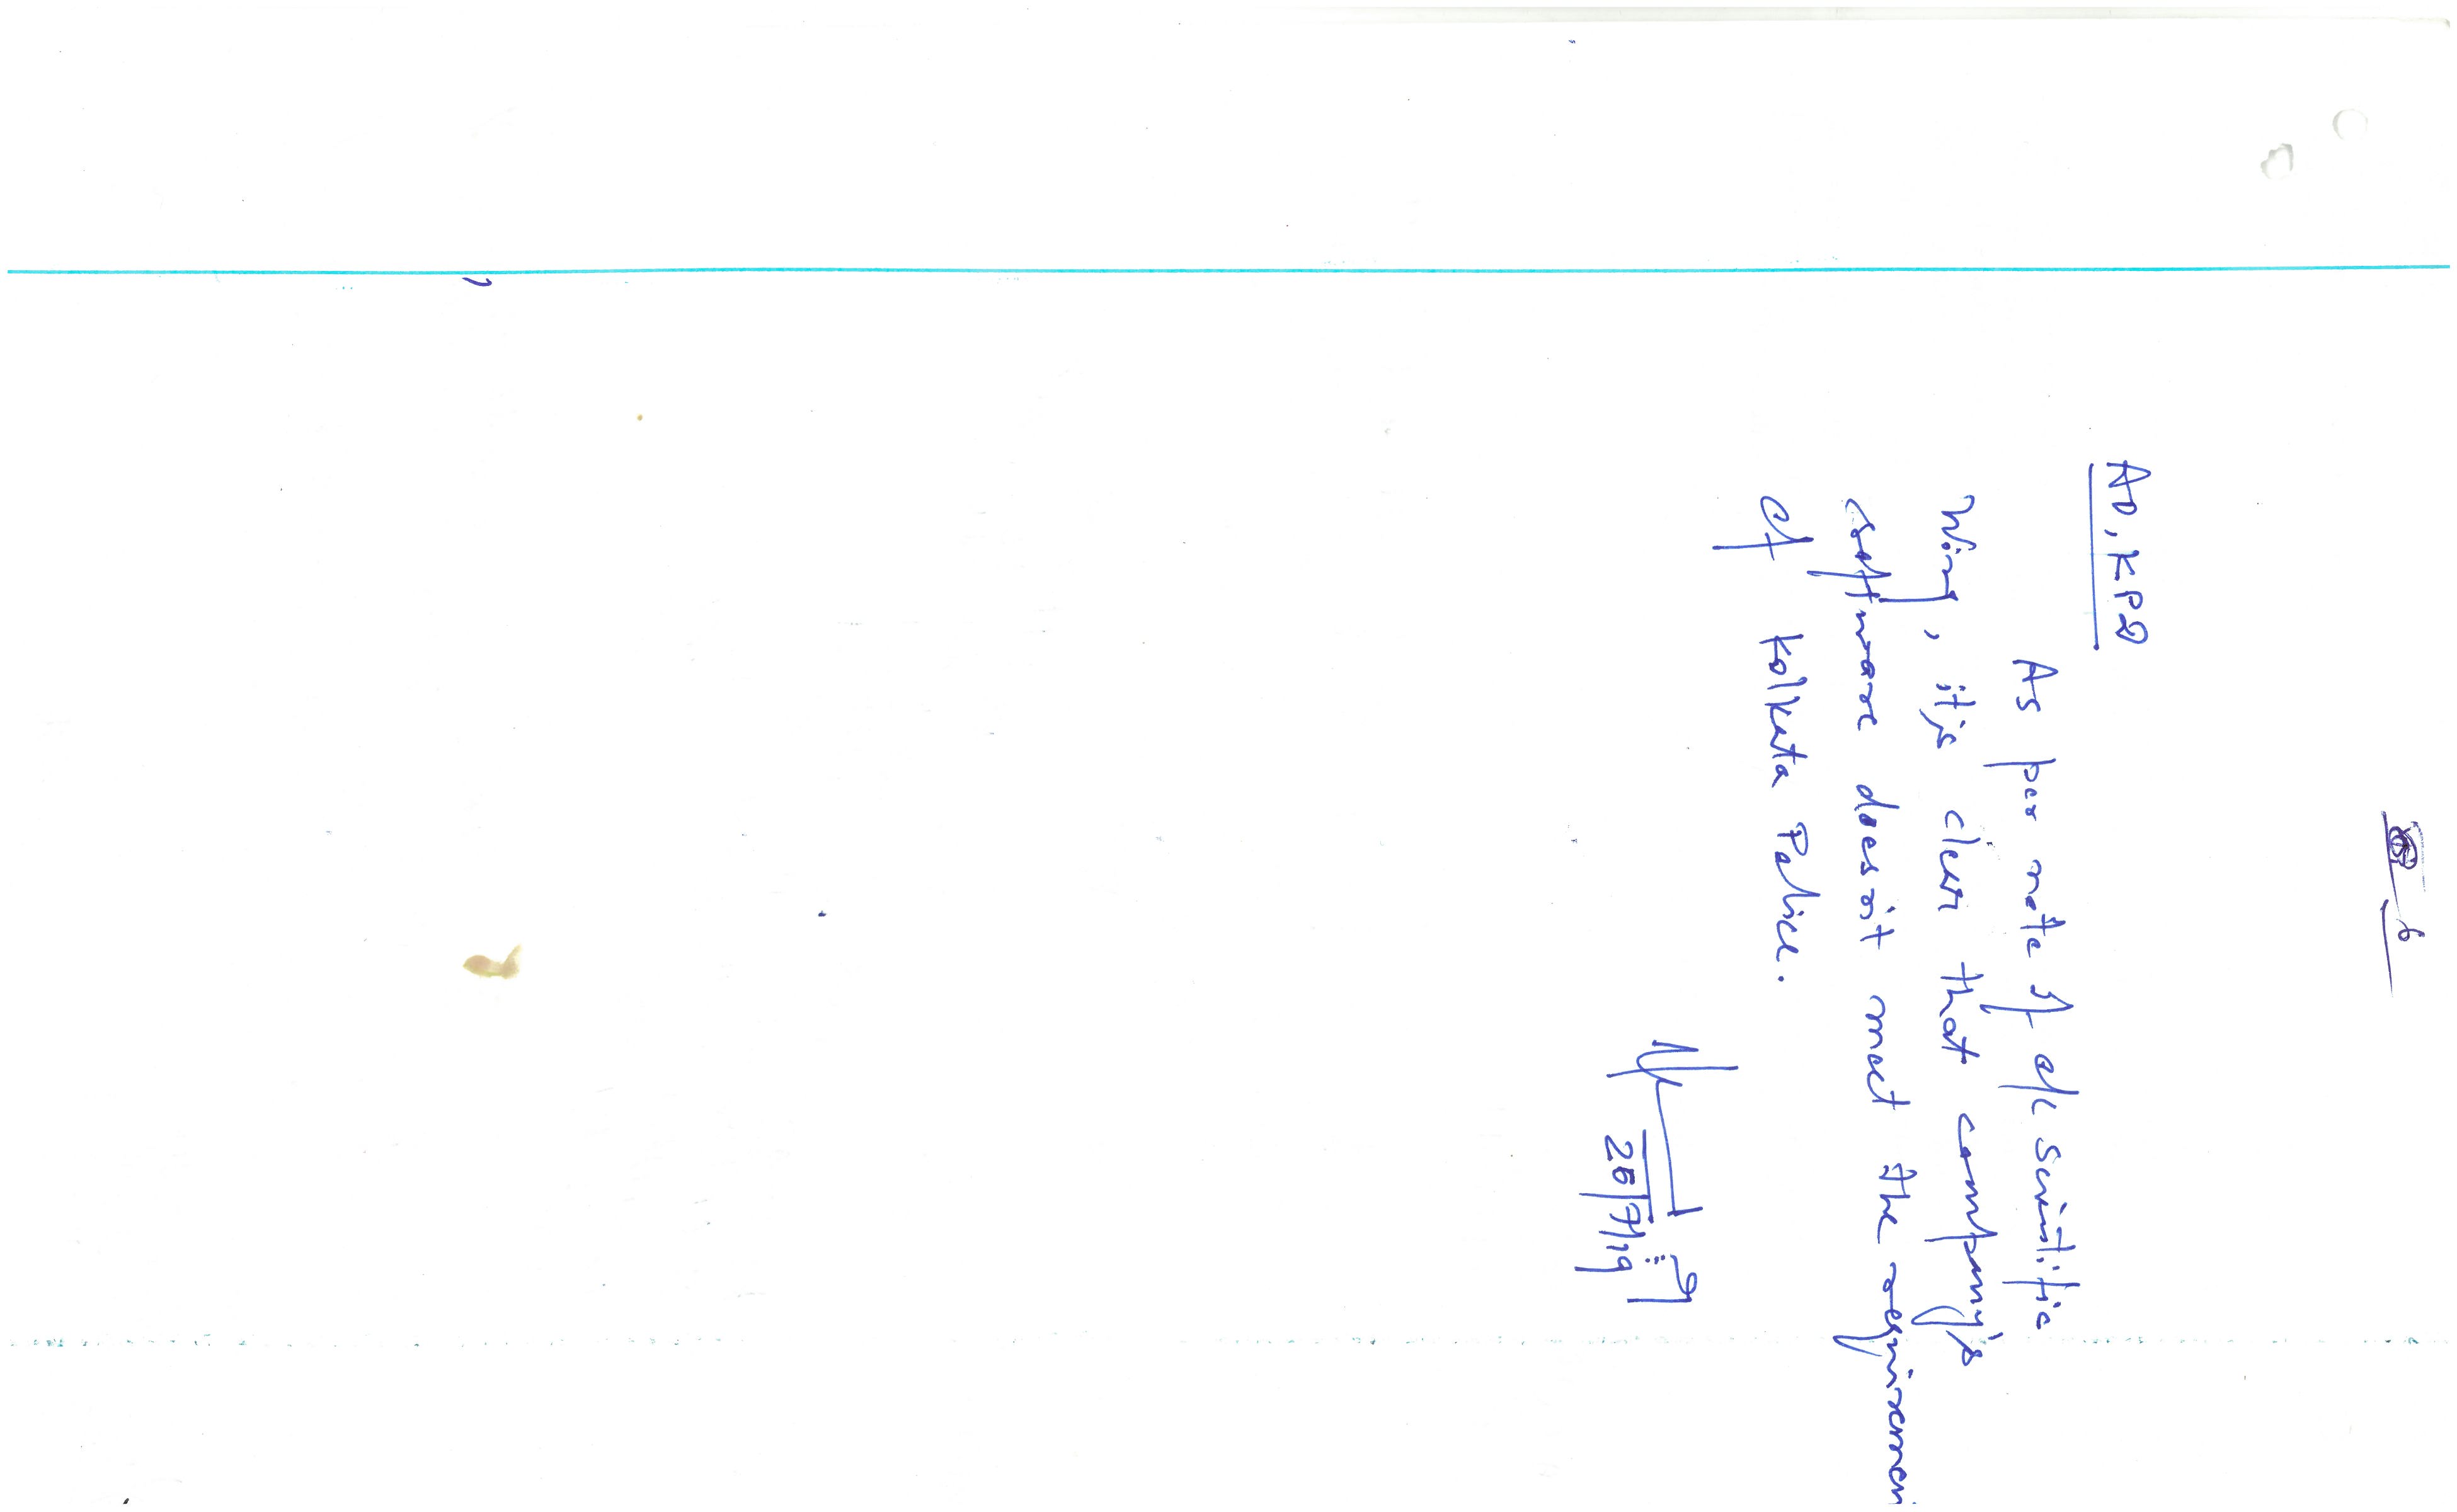 6
AD, KPD
As per note of o/c Scientific
Wing, it is clear that company's
software doesn't meet the requiremen
of Kolkata Police.
26/7/19